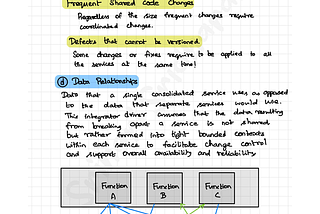 Frequent Shared code Changes
Regardless of the size frequent changes require
coordinated changes.
Defects that cannot be versioned
Some changes or fixes require to be applied to all
the services at the same time!
d Data Relationships
Data that a single consolidated service uses as opposed
to the data that separate services would use.
This integrator driver assumes that the data resulting
from breaking apart a service is not shared
but rather formed into tight bounded contexts
within each service to facilitate change control
and supports overall availability and reliability
Function
A
Function
B
Function
C